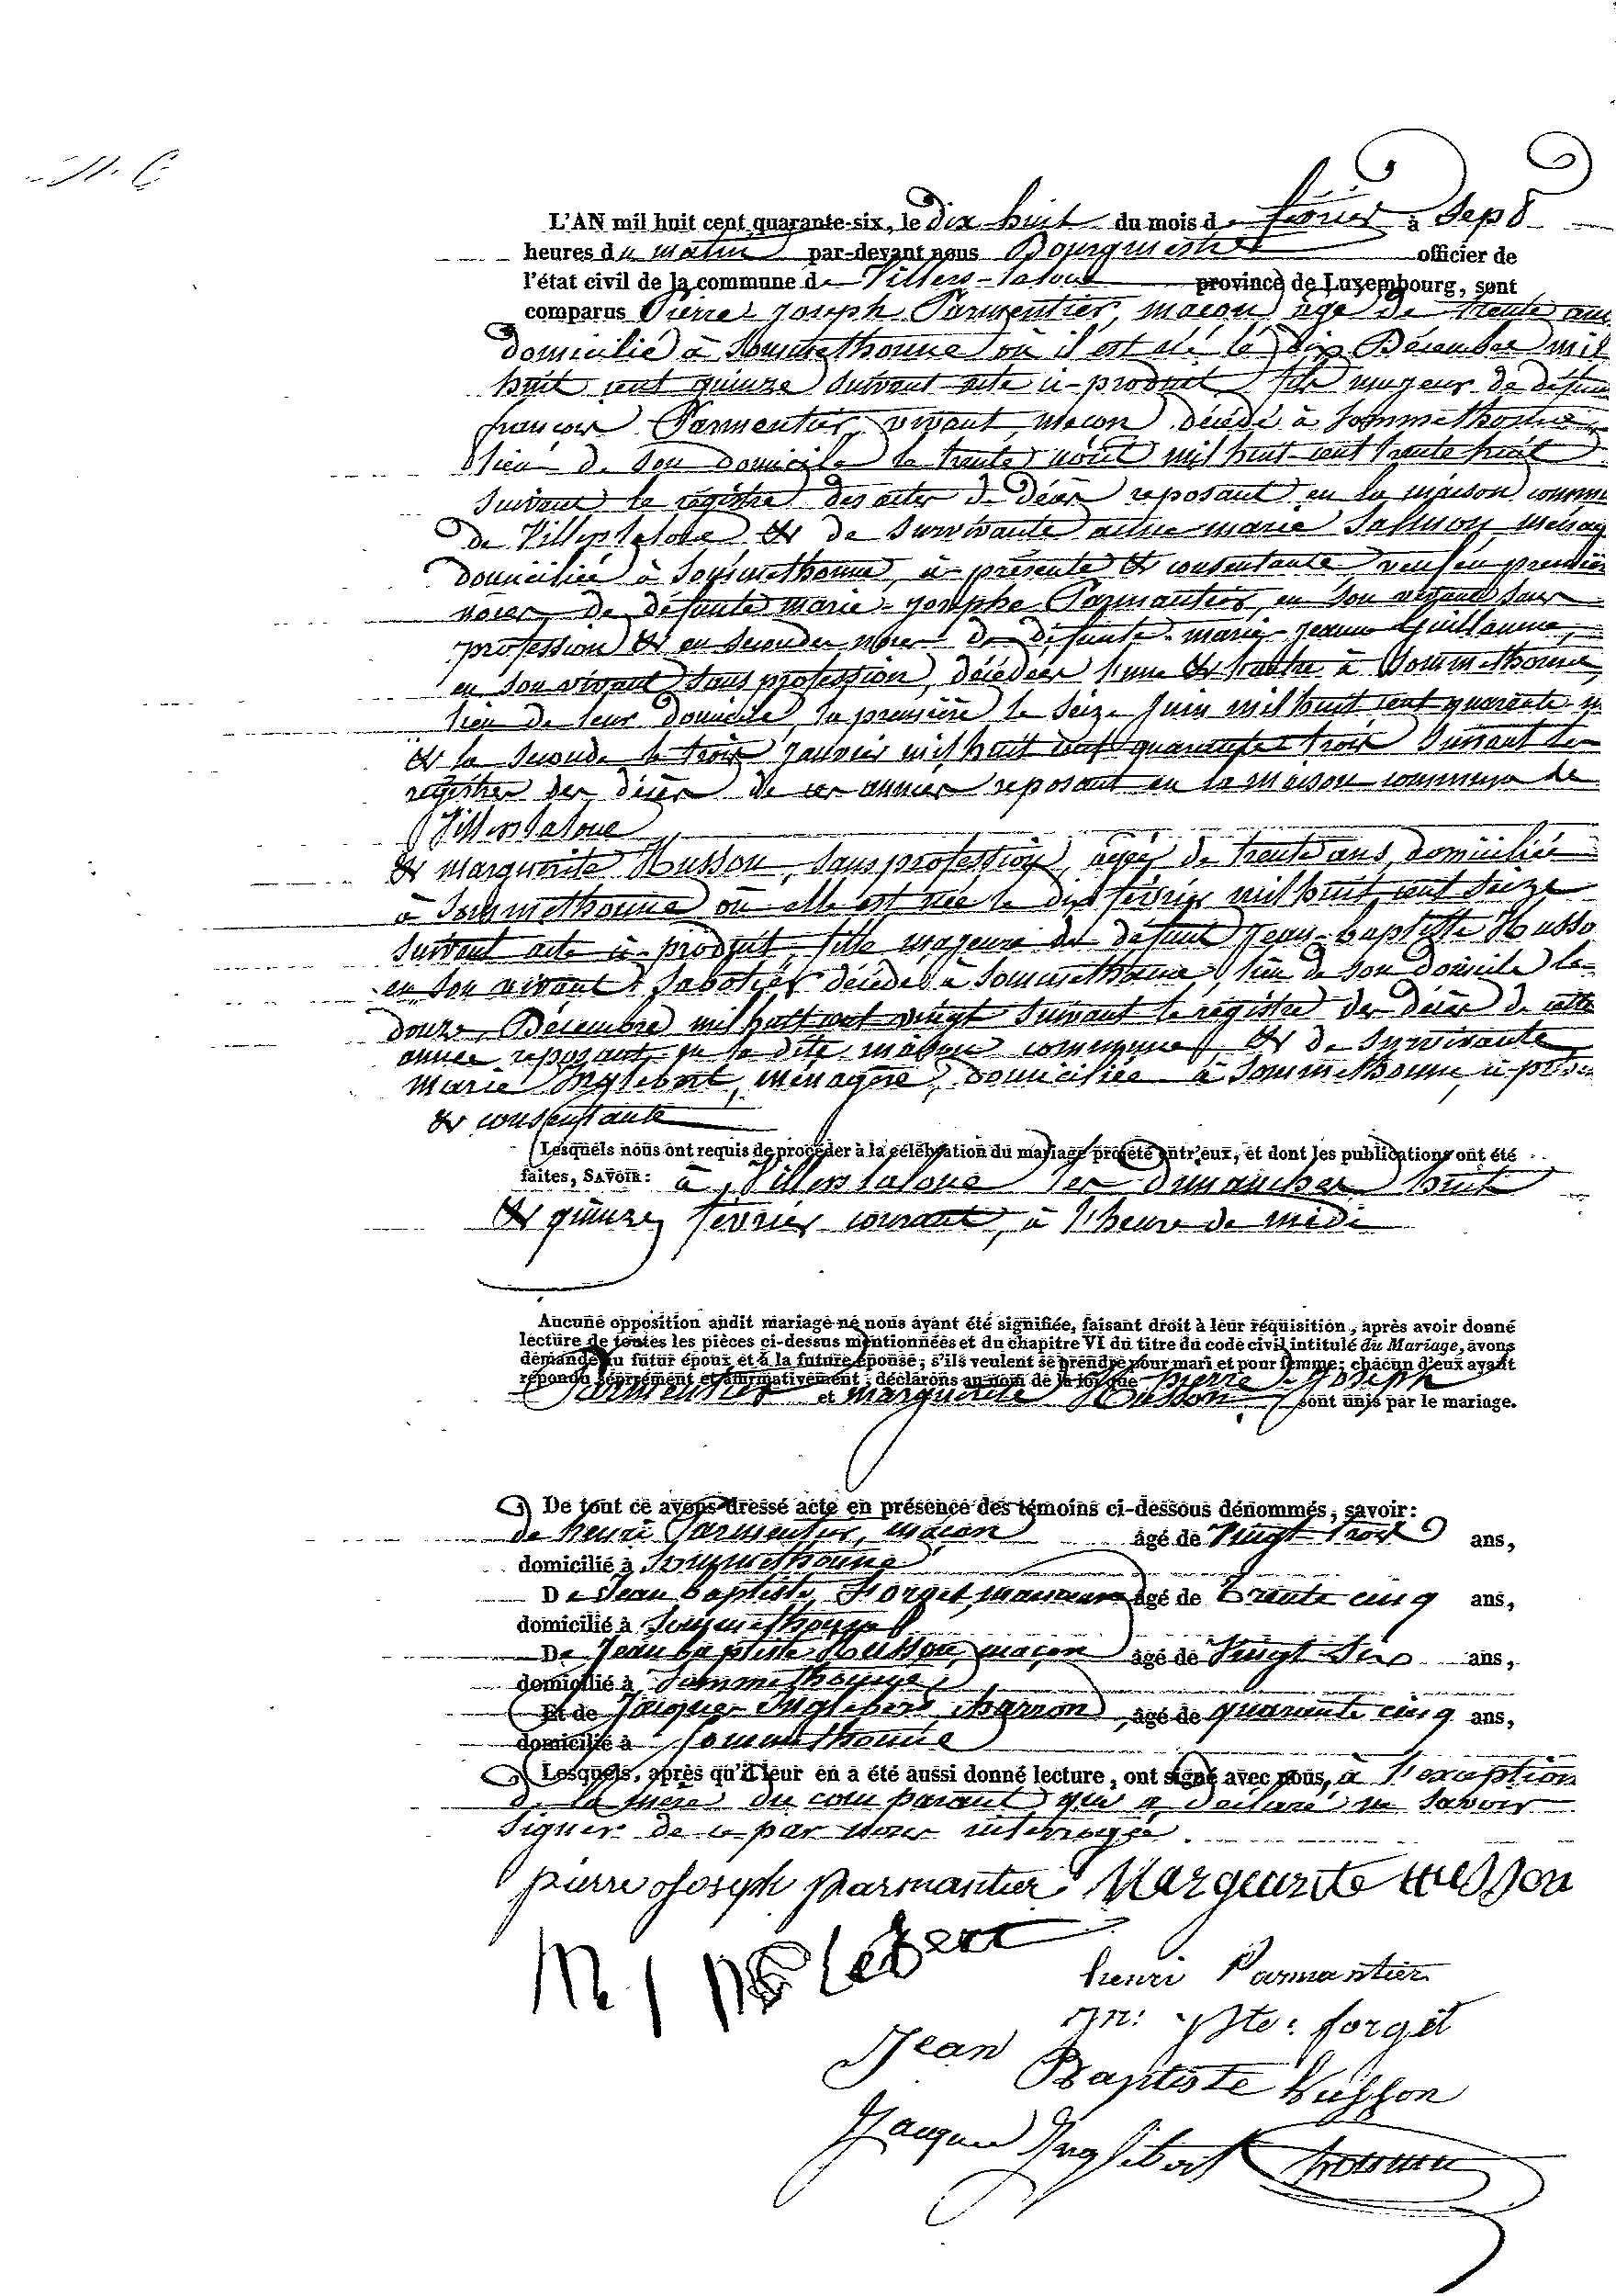 N. 6
L'AN mil huit cent quarante-six, le dix huit du mois de février à sept
heures du matin par-devant nous Bourgmestre officier de
l'état civil de la commune de Villers-laloue province de Luxembourg, sont
comparus Pierre Joseph Parmentier, maçon, âgé de trente ans
domicilié à Sommethonne où il est né le dix Décembre mil
huit cent quinze suivant acte ci-produit fils majeur de défunt
françois Parmentier, vivant maçon décédé à Sommethonne
lieu de son domicile le trente août mil huit cent trente huit
suivant le régistre des actes de décès reposant en la maison commune
de Villerslaloue & de survivante marie Salmon ménag
domiciliée à Sommethonne, ci-présente & consentante veuf en premières
noces de défunte marie-josephe Parmantier, en son vivant sans
profession & en secondes noces de défunte marie-jeanne Guillaume,
en son vivant sans profession, décédées l'une & l'autre à Sommethonne,
lieu de leur domicile, la première le seize Juin mil huit cent quarante un
& la seconde le trois janvier mil huit cent quarante trois suivant les
registres des décès de ces années reposant en la maison commune de
Villerslaloue
& marguerite Husson, sans profession, âgée de trente ans, domiciliée
à Sommethonne où elle est née le dix février mil huit cent seize
suivant acte ci-produit, fille majeure de défunt Jean-baptiste Husso
en son vivant Sabotier décédé à Sommethonne, lieu de son domicile le
douze Décembre mil huit cent vingt suivant le régistre des décès de cette
année reposant en la dite maison commune & de survivante
Marie Inglebert, ménagère, domiciliée à Sommethonne, ci-présen
& consentante
Lesquels nous ont requis de procéder à la célébration du mariage projeté entr'eux, et dont les publications ont été
faites, SAVOIR: à Villerslaloue les dimanches huit
& quinze février courant, à l'heure de midi
Aucune opposition audit mariage ne nous ayant été signifiée, faisant droit à leur réquisition, après avoir donné
lecture de toutes les pièces ci-dessus mentionnées et du chapitre VI du titre du code civil intitulé du Mariage, avons
demandé au futur époux et à la future épouse; s'ils veulent se prendre pour mari et pour femme; chacun d'eux ayant
répondu séprrément et affirmativement, déclarons au nom de la loi que pierre Joseph
Parmentier et marguerite Husson sont unis par le mariage.
De tout ce avons dressé acte en présence des témoins ci-dessous dénommés, savoir:
de henri Parmentier, maçon âgé de Vingt trois ans,
domicilié à Sommethonne
De Jean baptiste Forget, âgé de Trente cinq ans,
domicilié à Sommethonne
De Jean baptiste Husson, maçon âgé de Vingt Six ans,
domicilié à Sommethonne
Et de Jacques Inglebert charron, âgé de quarante cinq ans,
domicilié à Sommethonne
Lesquels, après qu'il leur en a été aussi donné lecture, ont signé avec nous, à l'exception
de la mère du comparant qui a déclaré ne savoir
signer de ce par nous interrogée.
pierre Joseph parmantier Marguerite husson
M J
henri Parmantier
jn: Bte: forget
Jean Baptiste husson
Jacques Inglebert